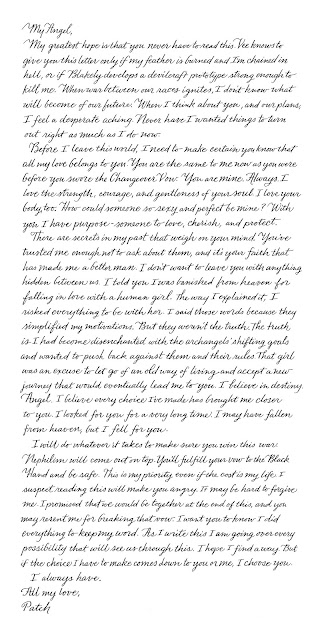 My Angel,
My greatest hope is that you never have to read this. Vee knows to
give you this letter only if my feather is burned and I'm chained in
hell, or if Blakely develops a devilcraft prototype strong enough to
kill me. When war between our races ignites, I don't know what
will become of our future. When I think about you and our plans,
I feel a desperate aching. Never have I wanted things to turn
out right as much as I do now.
Before I leave this world, I need to make certain you know that
all my love belongs to you. You are the same to me now as you were
before you swore the Changeover Vow. You are mine. Always. I
love the strength, courage, and gentleness of your soul. I love your
body, too. How could someone so sexy and perfect be mine? With
you I have purpose-someone to love, cherish, and protect.
There are secrets in my past that weigh on your mind. You've
trusted me enough not to ask about them, and it's your faith that
has made me a better man. I don't want to leave you with anything
hidden between us. I told you I was banished from heaven for
falling in love with a human girl. The way I explained it, I
risked everything to be with her. I said those words because they
simplified my motivations. But they weren't the truth. The truth
is I had become disenchanted with the archangels' shifting goals
and wanted to push back against them and their rules. That girl
was an excuse to let go of an old way of living and accept a new
journey that would eventually lead me to you. I believe in destiny,
Angel. I believe every choice I've made has brought me closer
to you. I looked for you for a very long time. I may have fallen
from heaven, but I fell for you.
I will do whatever it takes to make sure you win this war.
Nephilim will come out on top. You'll fulfill your vow to the Black
Hand and be safe. This is my priority even if the cost is my life. I
suspect reading this will make you angry. It may be hard to forgive
me. I promised that we would be together at the end of this, and you
may resent me for breaking that vow. I want you to know I did
everything to keep my word. As I write this I am going over every
possibility that will see us through this. I hope I find a way. But
if the choice I have to make comes down to you or me, I choose you.
I always have.
All my love,
Patch